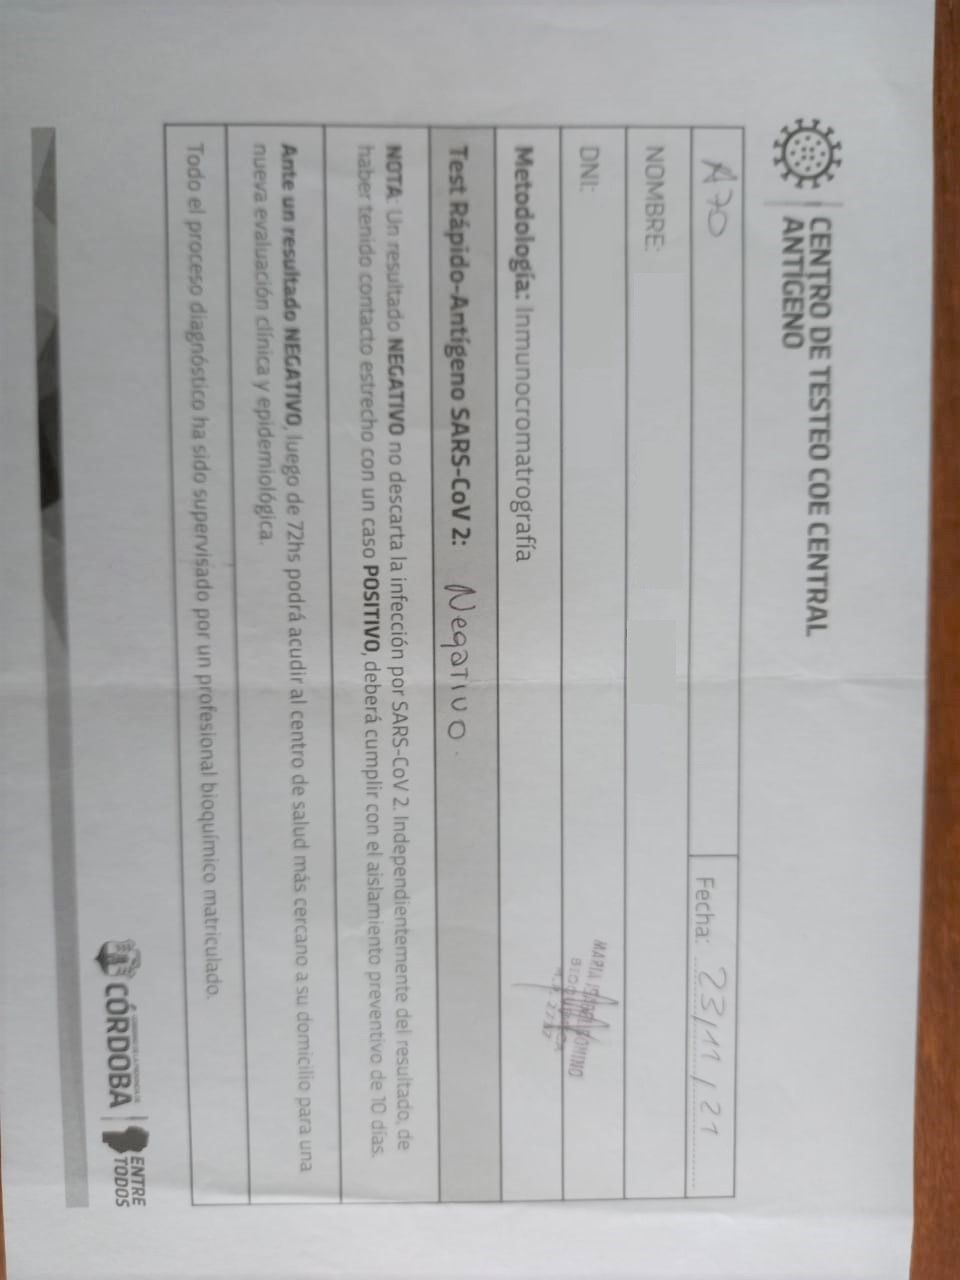 CENTRO DE TESTEO COE CENTRAL
ANTÍGENO
A70
Fecha: 23/11/21
NOMBRE:
DNI:
MARIA
Metodología: Inmunocromatrografía
Test Rápido-Antígeno SARS-CoV 2: Negativo.
NOTA: Un resultado NEGATIVO no descarta la infección por SARS-CoV 2. Independientemente del resultado, de
haber tenido contacto estrecho con un caso POSITIVO, deberá cumplir con el aislamiento preventivo de 10 días.
Ante un resultado NEGATIVO, luego de 72hs podrá acudir al centro de salud más cercano a su domicilio para una
nueva evaluación clínica y epidemiológica.
Todo el proceso diagnóstico ha sido supervisado por un profesional bioquímico matriculado.
CÓRDOBA
ENTRE
TODOS